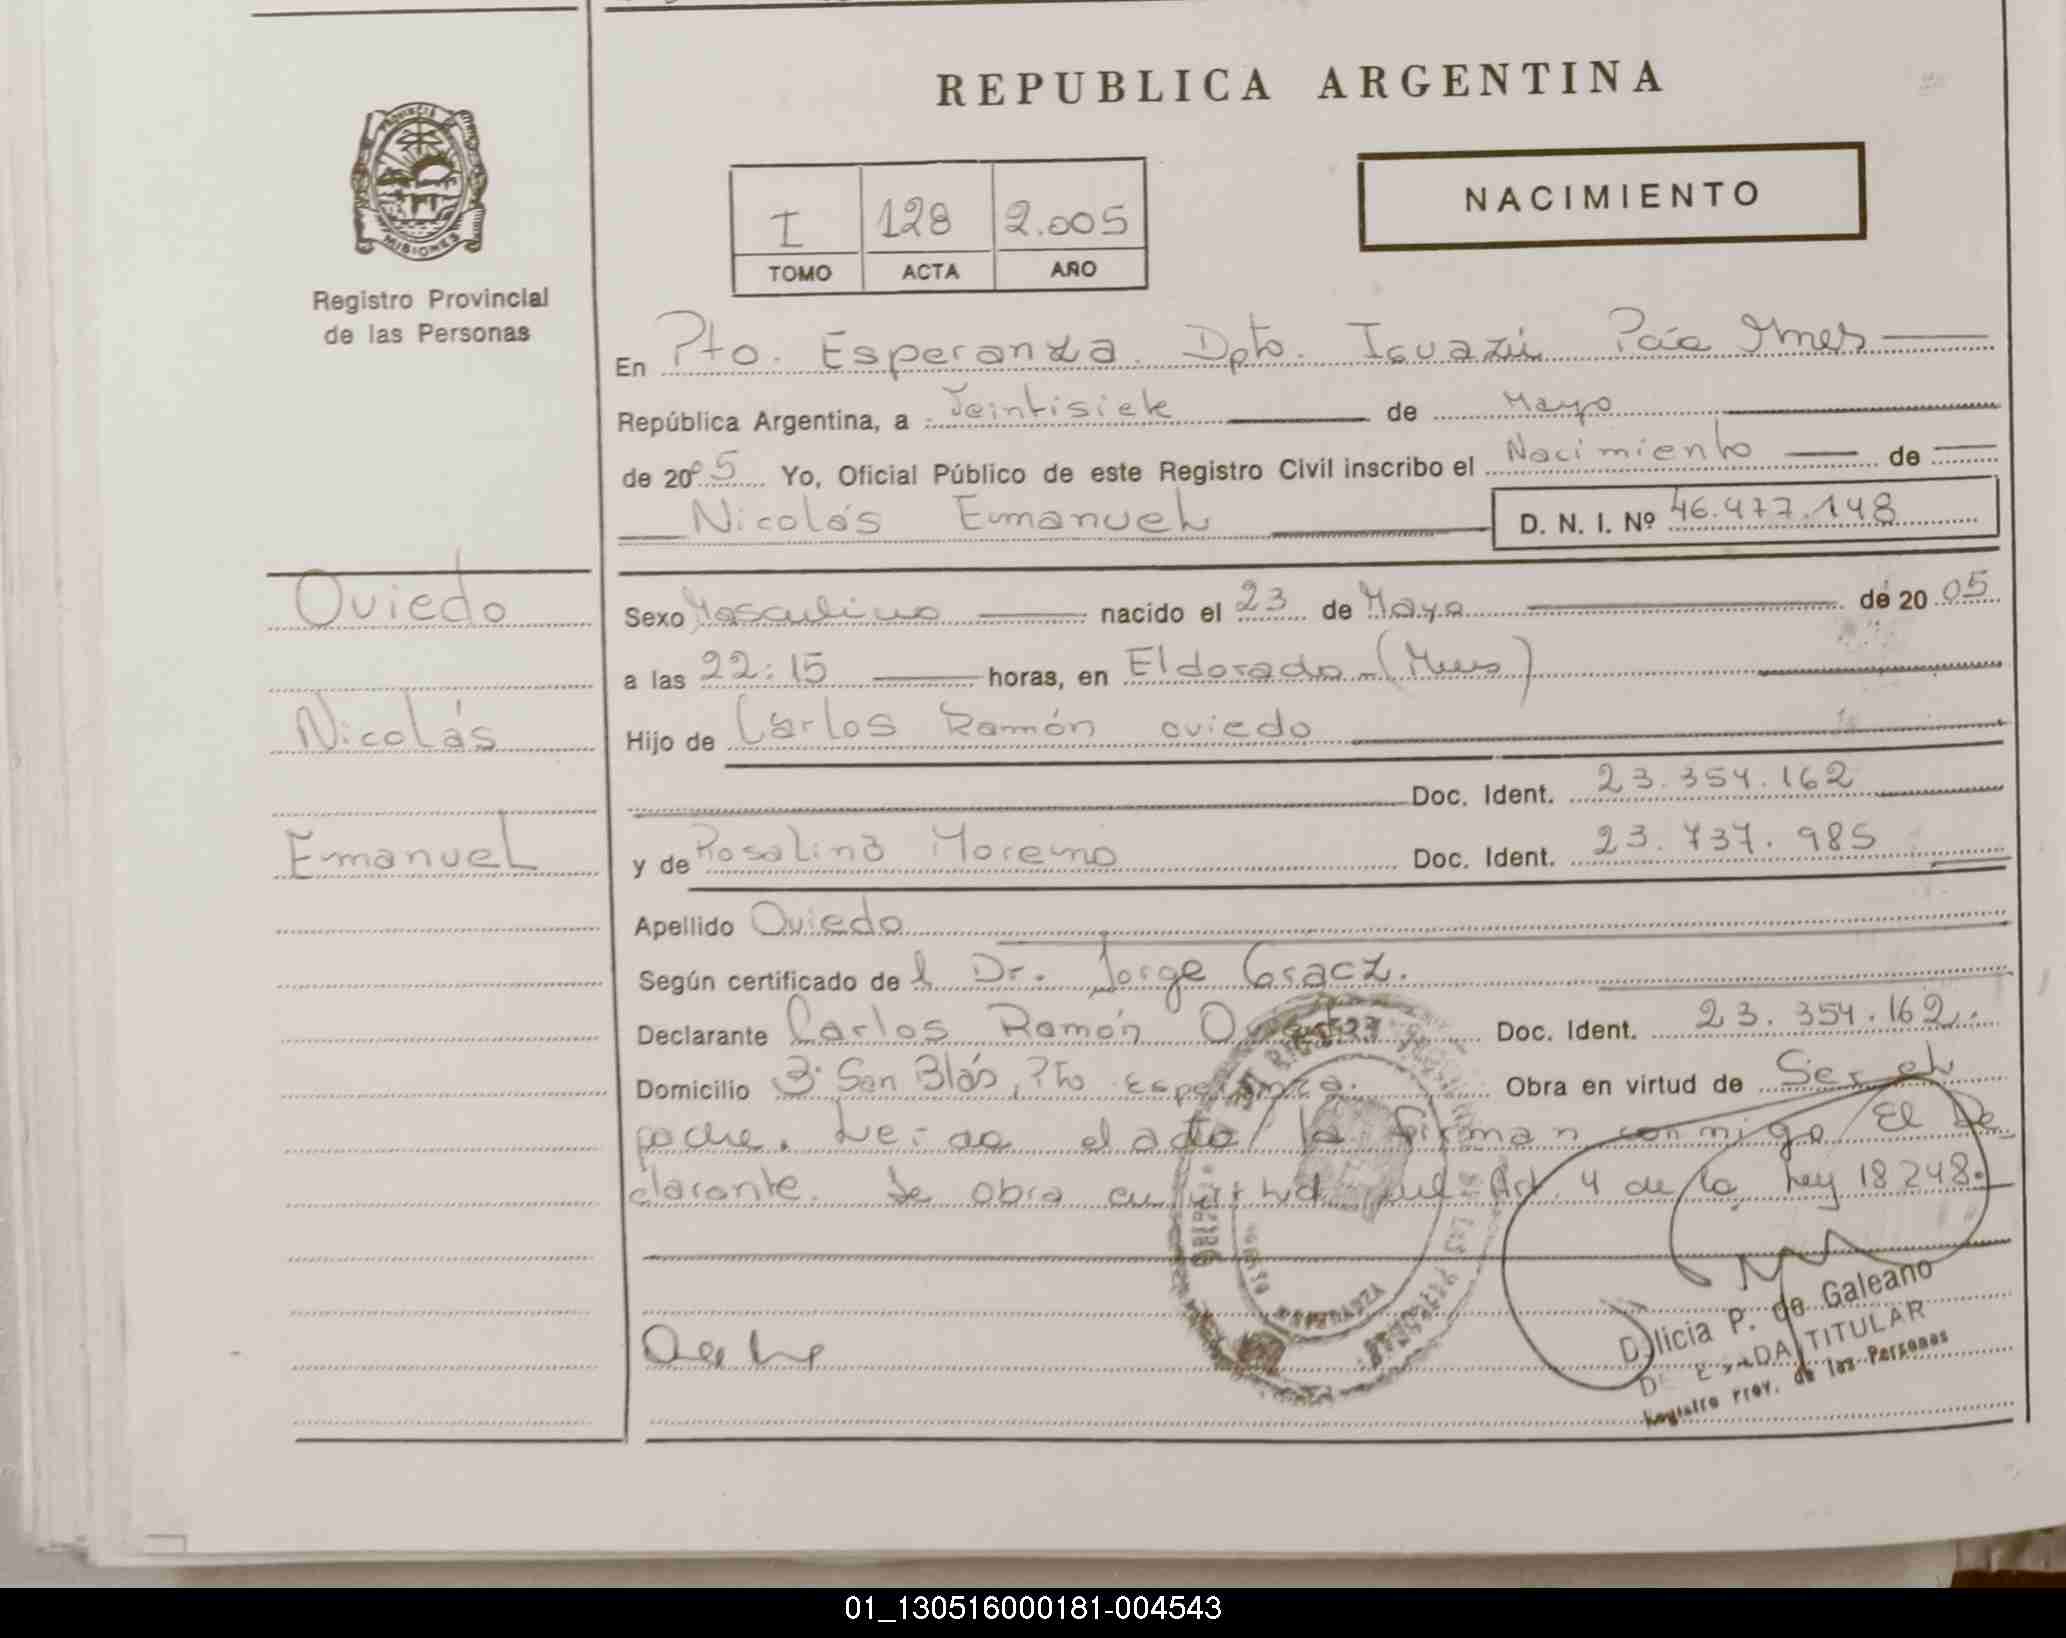 REPUBLICA ARGENTINA
MISIONES
Registro Provincial
de las Personas
I 128 2.005
TOMO ACTA AÑO
NACIMIENTO
En Pto. Esperanza. Dpto. Iguazú Pcia Mnes
República Argentina, a Veintisiete de Mayo
de 2005 Yo, Oficial Público de este Registro Civil inscribo el Nacimiento de
Nicolás Emanuel D. N. I. Nº 46.477.148
Oviedo
Nicolás
Emanuel
Sexo Masculino nacido el 23 de Mayo de 2005
a las 22:15 horas, en Eldorado (Mnes)
Hijo de Carlos Ramón Oviedo
Doc. Ident. 23.354.162
y de Rosalina Moreno Doc. Ident. 23.737.985
Apellido Oviedo
Según certificado del Dr. Jorge
Declarante Carlos Ramón Oviedo Doc. Ident. 23.354.162.
Domicilio Bº San Blás, Pto Esperanza. Obra en virtud de Ser el
padre. Leída el acta la firman conmigo El De
clarante. Se obra en virtud del Art. 4 de la Ley 18248.
ESPERANZA
Delicia P. de Galeano
DELEGADA TITULAR
Registro Prov. de las Personas
01_130516000181-004543